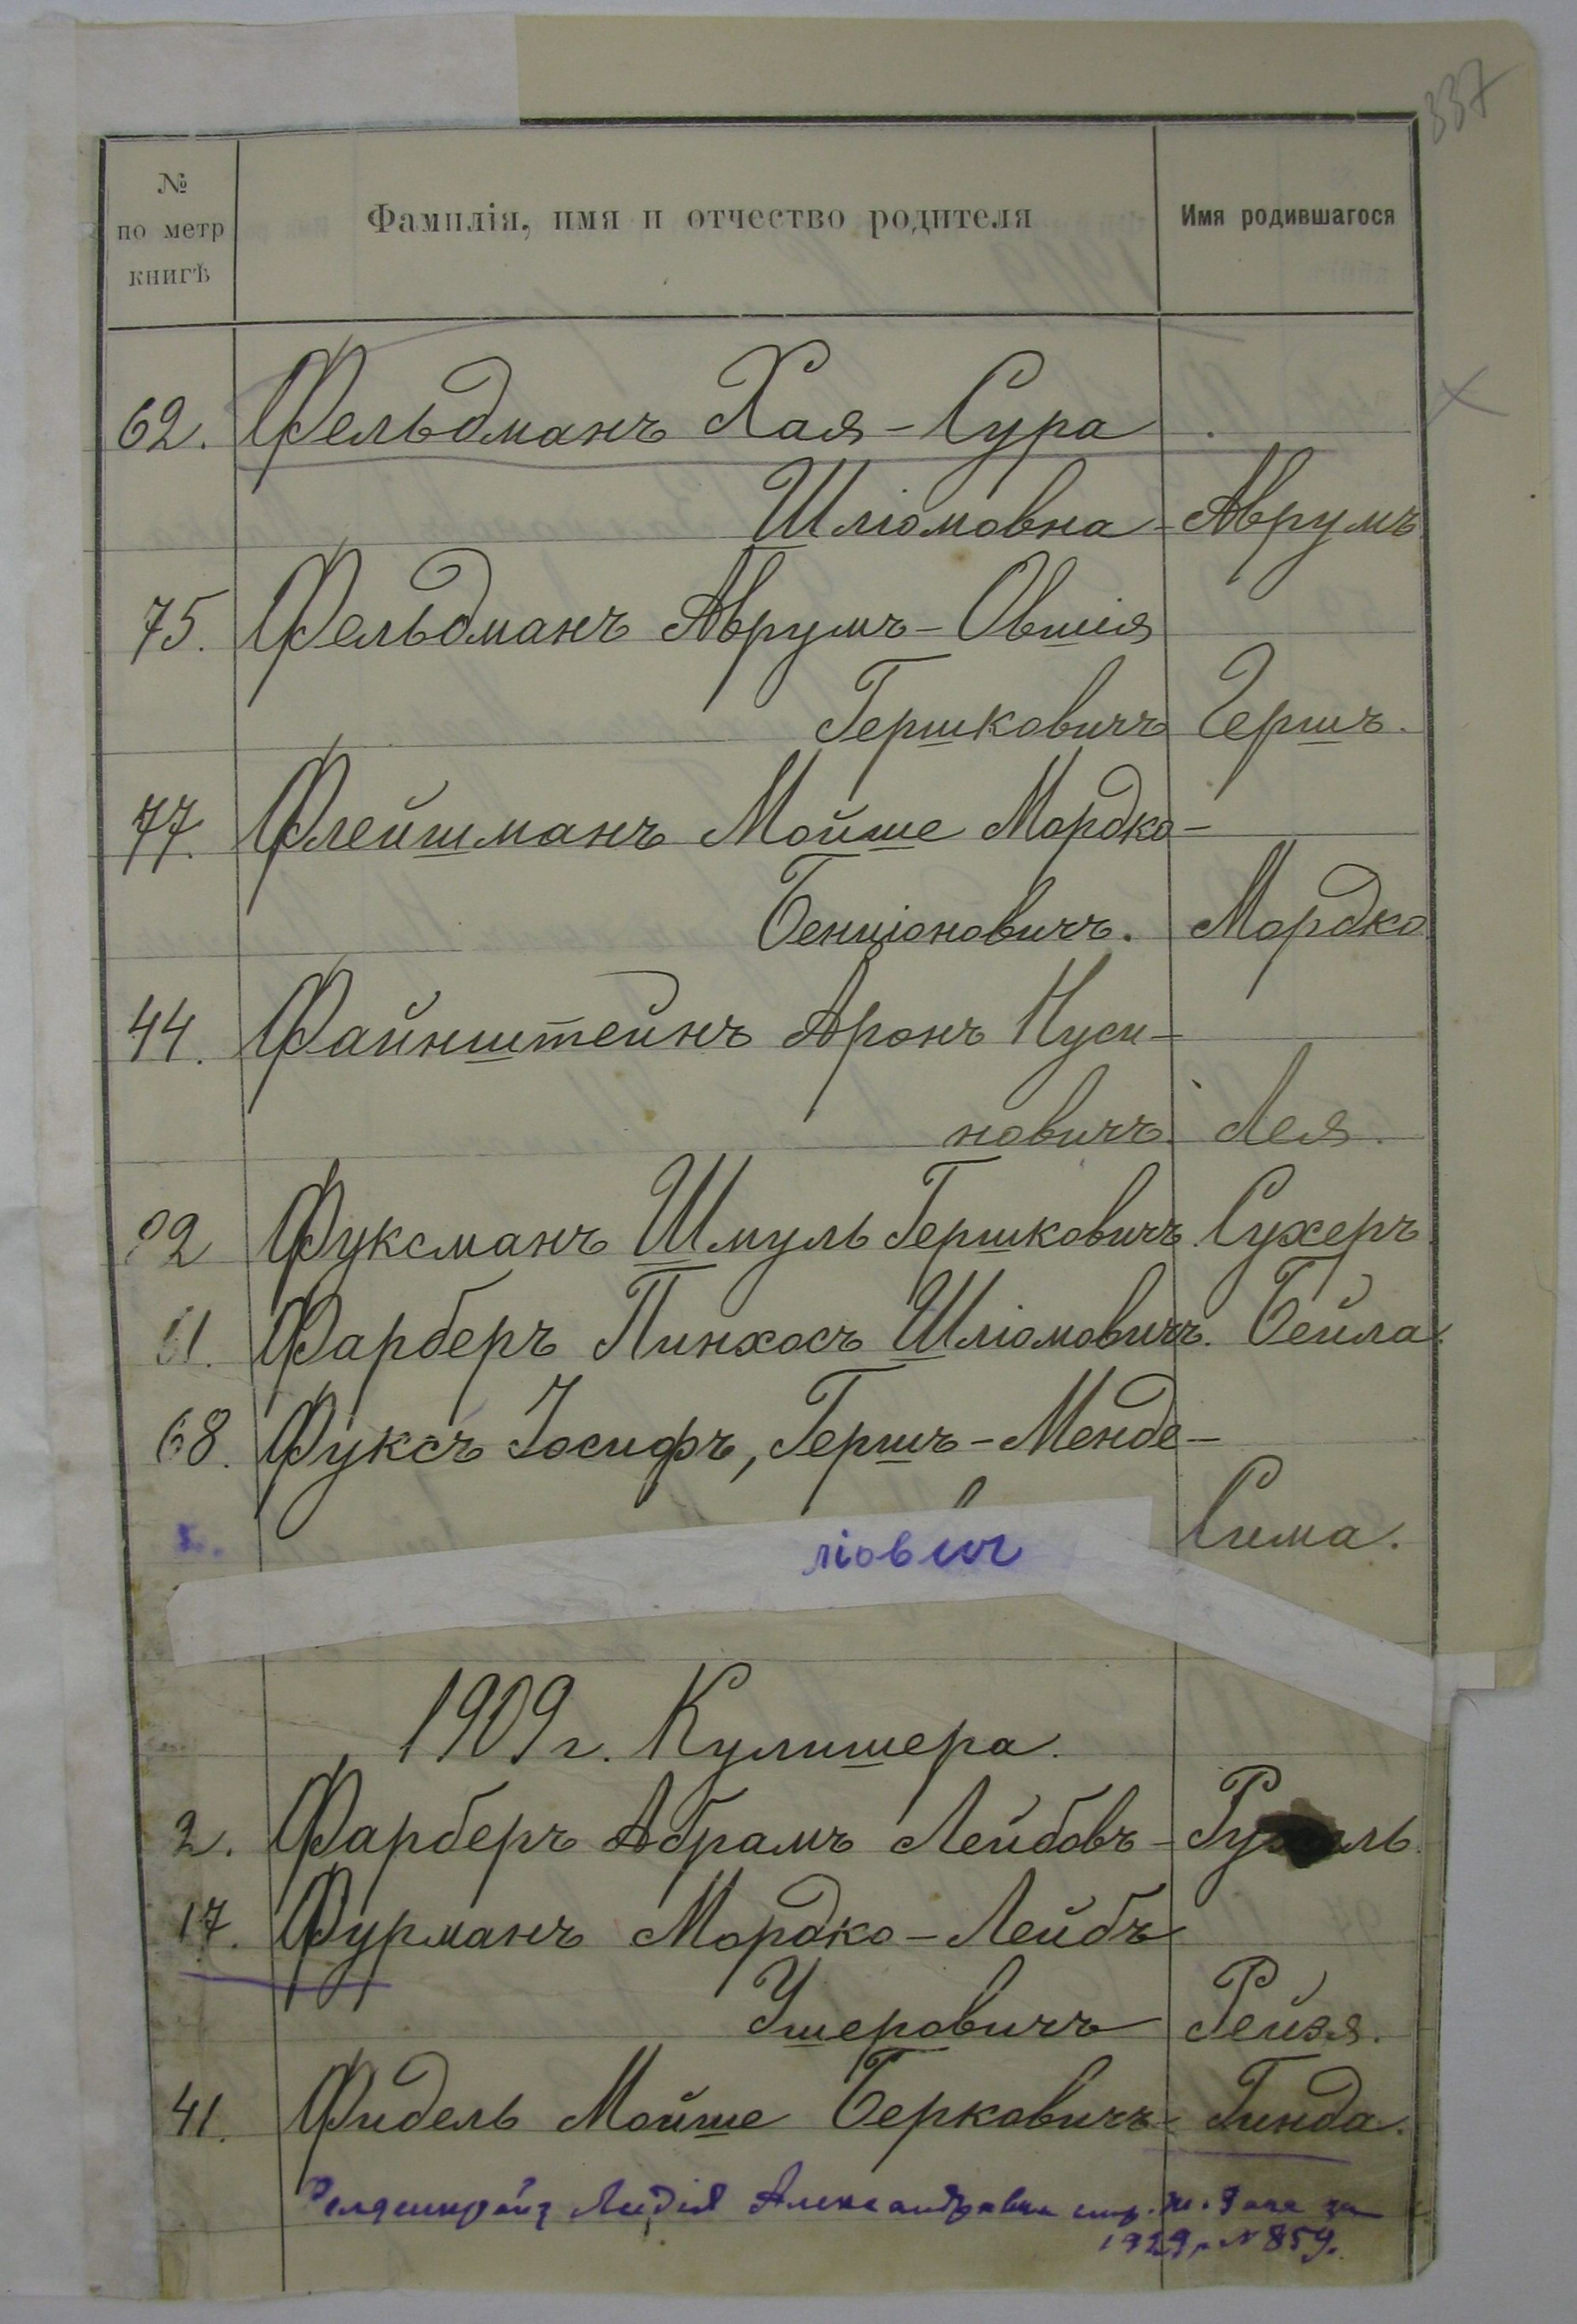 337
№
по метр
книгѣ
Фамилія, имя и отчество родителя
Имя родившагося
62. Фельдманъ Хая-Сура
Шліомовна - Аврумъ
75. Фельдманъ Аврумъ-Овшія
Гершковичъ Гершъ.
77. Флейшманъ Мойше Мордко-
Бенціоновичъ. Мордко
44. Файнштейнъ Аронъ Нуси-
новичъ. Лея.
Фуксманъ Шмуль Гершковичъ. Сухеръ
Фарберъ Пинхосъ Шліомовичъ. Бейла.
68. Фуксъ Іосифъ, Гершъ-Менде-
ліович Сима.
1909 г. Кулишера.
2. Фарберъ Абрамъ Лейбовъ -
17. Фурманъ Мордко-Лейбъ
Ушеровичъ Рейзя.
41. Фидель Мойше Берковичъ - Гинда.
Лидія Александровна
1929 г. № 859.